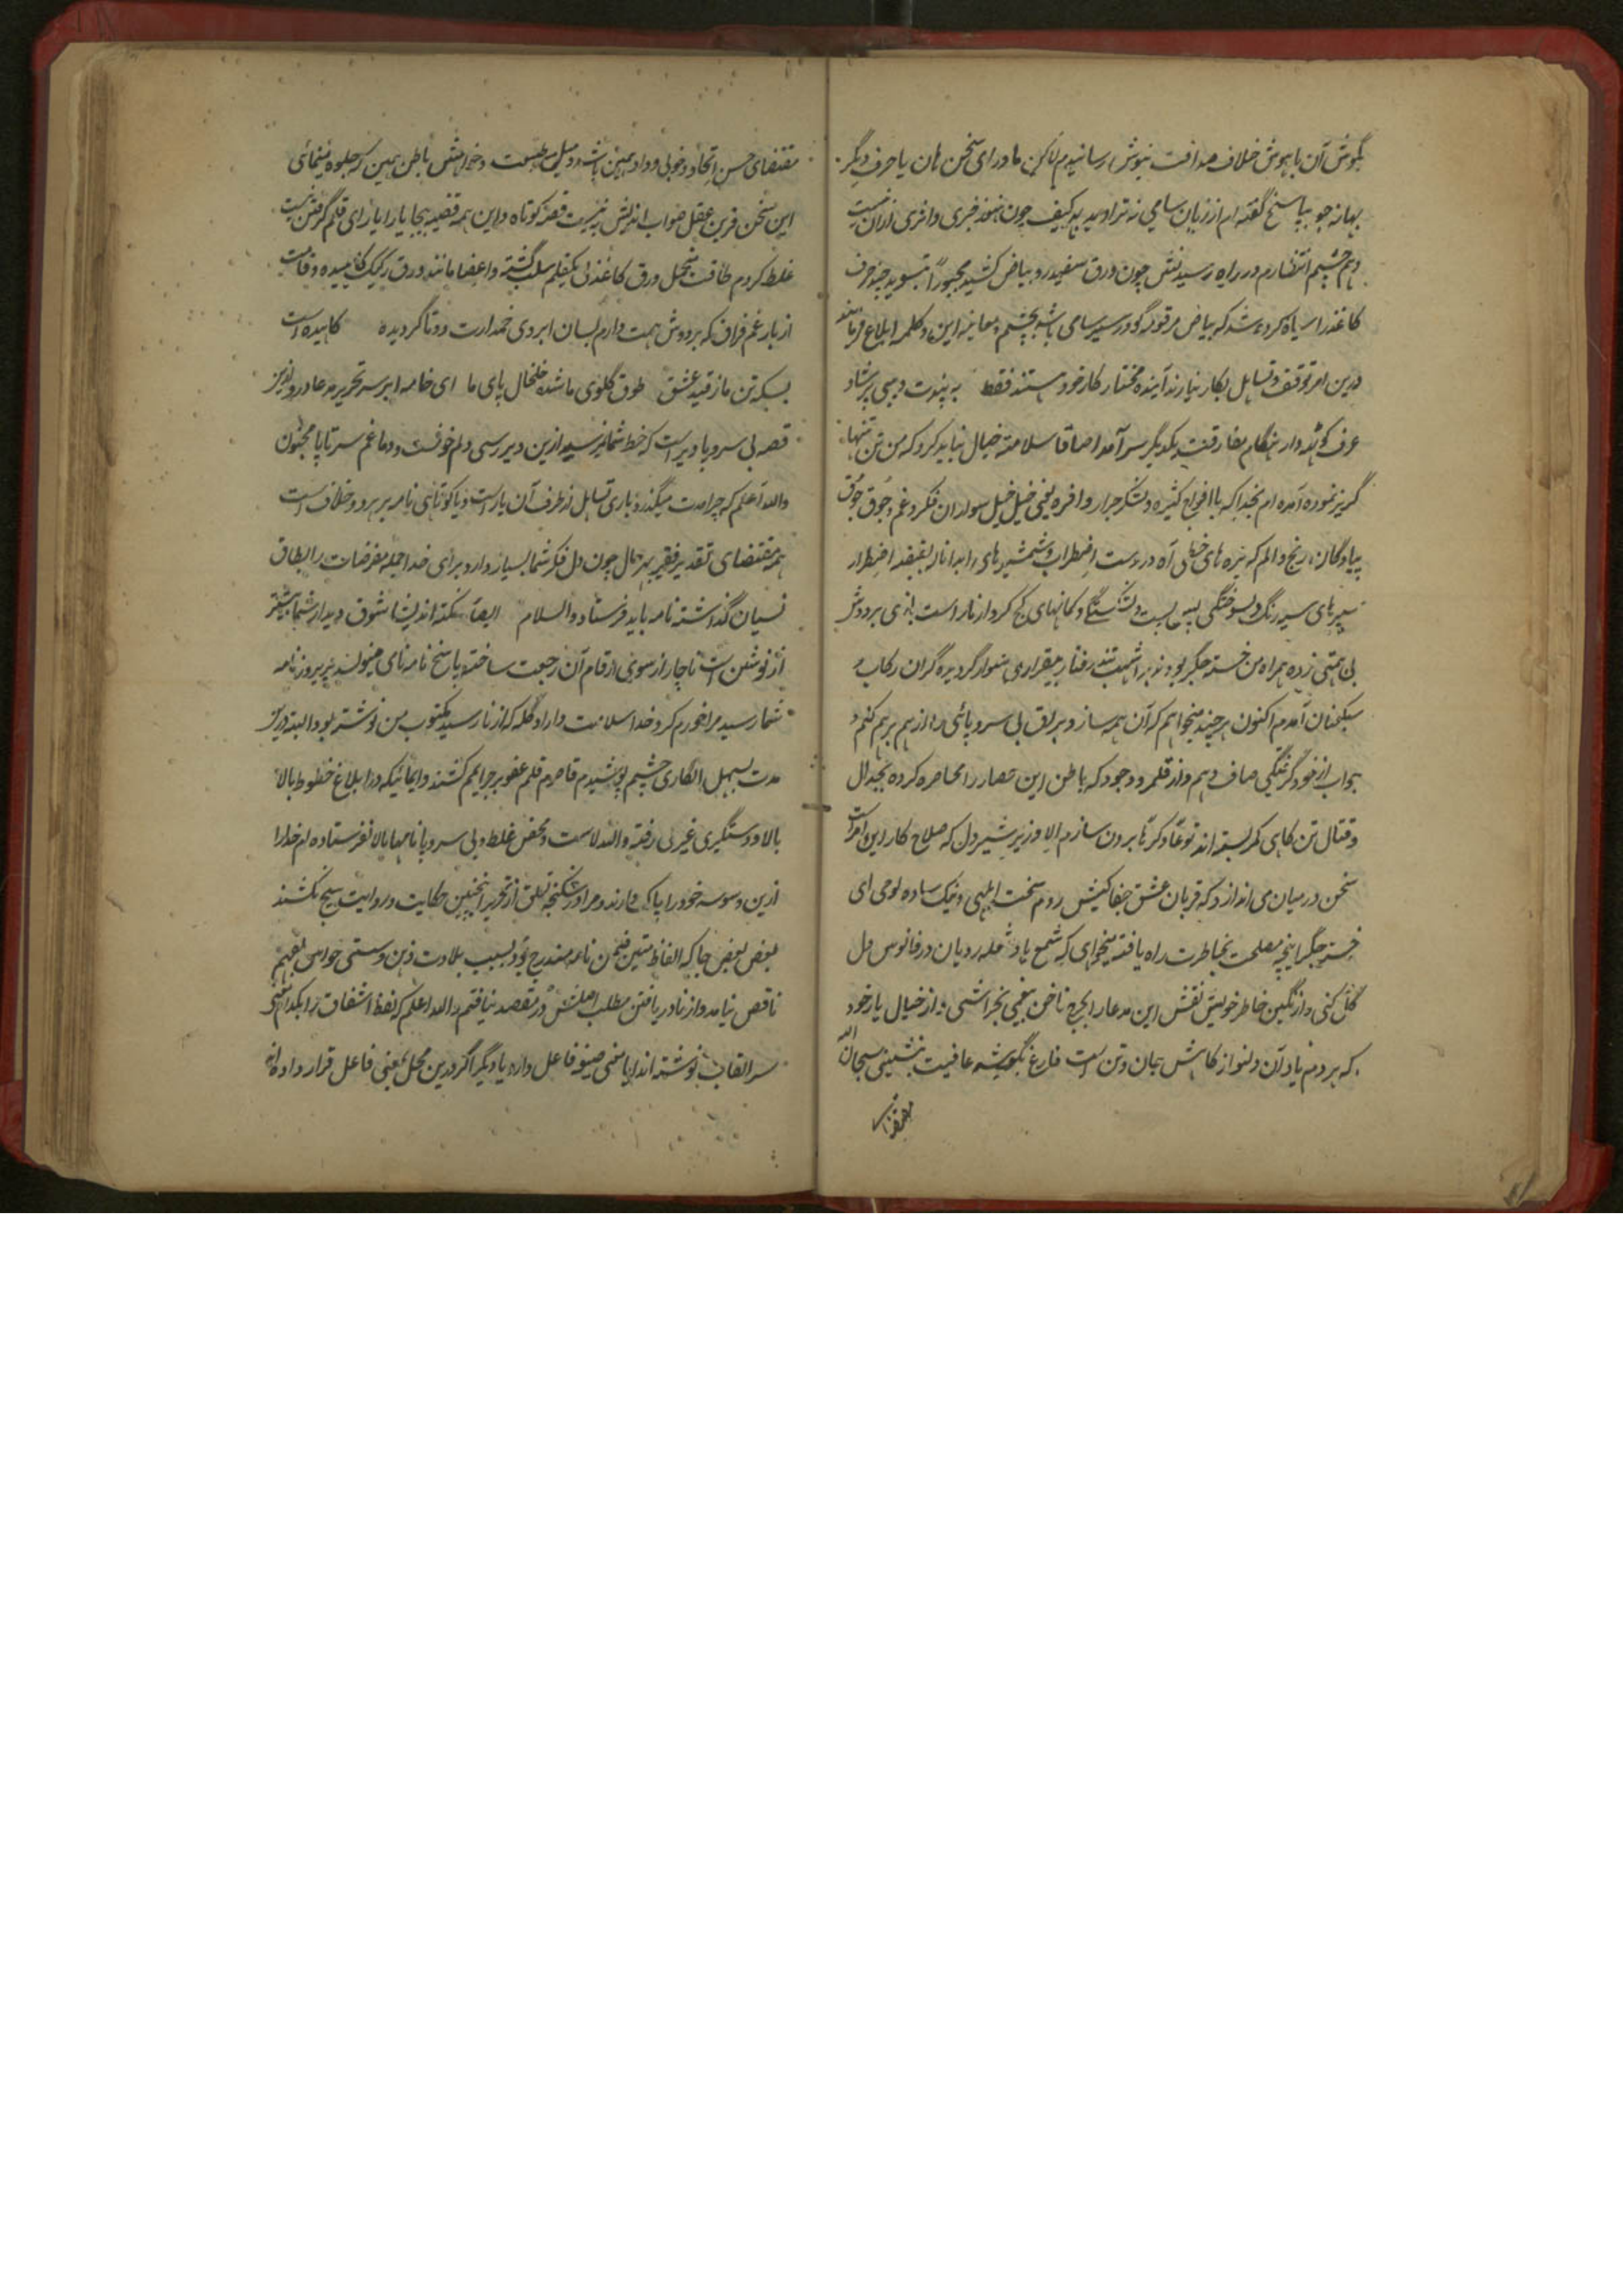 بگوش آن با هوش خلاف صداقت نیوش رسانیدم لاکن ماورای سخن هان یا حرف دیگر
بهانه جو بپاسخ گفته ام از زبان سامی نه تراوید بهر کیف چون هنوز خبری و اثری ازان نیست
و هم چشم انتظارم در راه رسیدنش چون ورق سفید رو به بیاض کشید مجبوراً بتسوید چند حرف
کاغذ را سیاه کرده شد که بیاض مرقومه گو در سید سامی باشد بچشم و معاینه این دو کلمه ابلاغ فرمایند
درین امر توقف و تساهل بکار نیارند آینده مختار کار خود هستند فقط به پندت دیبی پرشاد
عرف که هنگام مفارقت یکدیگر سر آمد اصدقا سلامت خیال نباید کرد که من تن تنها
گریز نموده آمده ام بخدا که با افواج کثیره و لشکر جرار وافره یعنی خیل خیل سواران فکر و غم و جوق جوق
پیادگان رنج و الم که نیزه های خطی آه در دست اضطراب و شمشیرهای ناله بقبضه اضطرار
سپرهای سیه رنگ دلسوختگی پس پشت و کمانهای کج کردار ناراست بازی بر دوش
بی همتی زده همراه من خسته جگر بود بر اشهب تند رفتار بیقراری سوار گردیده گران رکاب و
سبک عنان آمدم اکنون هر چند میخواهم که آن همه ساز و یراق بی سر و پائی را از هم برهم کنم و
جواب از خود گرفتگی صاف دهم و از قلمرو وجود که باطن این حصار را محاصره کرده بجدال
و قتال تن کاهی کمر بسته اند طوعاً و کرهاً برون سازم الا وزیر شیردل که صلاح کار این امر است
سخن در میان می اندازد که قربان عشق جفاکیش روم سخت ابلهی و نیک ساده لوحی ای
خسته جگر اینچه مصلحت بخاطرت راه یافته میخواهی که شمع یاد شعله رویان در فانوس دل
گل کنی و از نگین خاطر خویش نقش این مدعا را بجرح ناخن بیغمی بخراشی و از خیال یار خود
که هر دم یاد آن دلنواز کاهش جان و تن است فارغ بگوشه عافیت بنشینی سبحان الله
مقتضای
مقتضای حسن اتحاد و خوبی وداد همین باشد و میل طبیعت و خواهش باطن همین که جلوه مینمائی
این سخن قرین عقل صواب اندیش نیست قصه کوتاه و این همه قضیه بیجا یا را یارای قلم گرفتن نیست
غلط کردم طاقت تحمل ورق کاغذ از یکقلم سلب گشته و اعضا مانند ورق رکیک کاهیده و قامت
از بار غم فراق که بر دوش همت دارم بسان ابروی خمدارت دوتا گردیده کاهیده است
بسکه تن ما ز قید عشق طوق گلوی ما شده خلخال پای ما ای خامه بر سر تحریر مدعا در و امروز
قصه بی سر و پا دیر است که خط شما نرسید ازین دیر رسی دلم خونست و دماغم سرتاپا مجنون
والله اعلم که چرا مدت میگذرد باری تساهل از طرف آن یار است و یا کوتاهی نامه بر هر دو خلاف است
همه مقتضای تقدیر فقیر بهر حال چون دل فکر شما بسیار دارد برای خدا جمله مفرضات را بطاق
نسیان گذاشته نامه باید فرستاد والسلام ایضاً نکته اندیشا شوق دیدار شما بیشتر
از نوشتن است ناچار از سوبی ارقام آن رجعت ساخته پاسخ نامه نامی مینویسد پریروز نامه
شما رسید مرا خورم کرد خدا سلامت دارد گله که از نارسید مکتوب من نوشته بود البته درین
مدت بسهل انگاری چشم پوشیدم قاصرم قلم عفو بر جرایم کشند و ایمائیکه در ابلاغ خطوط بالا
بالا و دستگیری غیری رفته والله لاست و محض غلط و بی سر و پا نامها بالا نفرستاده ام خدارا
ازین وسوسه خود را پاک دارند و مرا در شکنجه قلق از تحریر اینچنین حکایت و روایت هیچ نکشند
بعض بعض جا که الفاظ متین مندرج بود بسبب بلادت ذهن و سستی حواس بفهم
ناقص نیامد و از نادریافتن مطلب اصلش در مقصد نیافتم والله اعلم که لفظ اشفاق را بکدام معنی
سر القاب نوشته اند ایا معنی صیغه فاعل دارد یا دیگر اگر درین محل بمعنی فاعل قرار داده اند